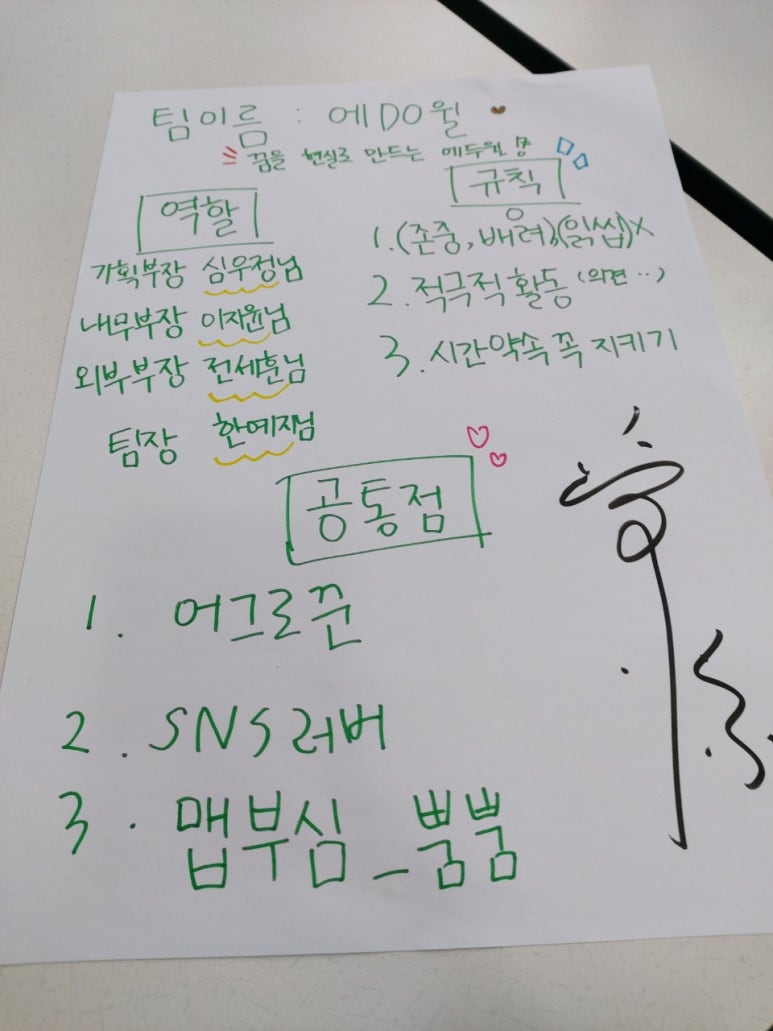 팀이름 : 에DO윌
꿈을 현실로 만드는 에듀윌
역할
기획부장 심우정님
내무부장 이자윤님
외부부장 전세훈님
팀장 한예지님
규칙
1. (존중, 배려),(읽씹)X
2. 적극적 활동 (의견..)
3. 시간약속 꼭 지키기
공통점
1. 어그로꾼
2. SNS러버
3. 맵부심_뿜뿜